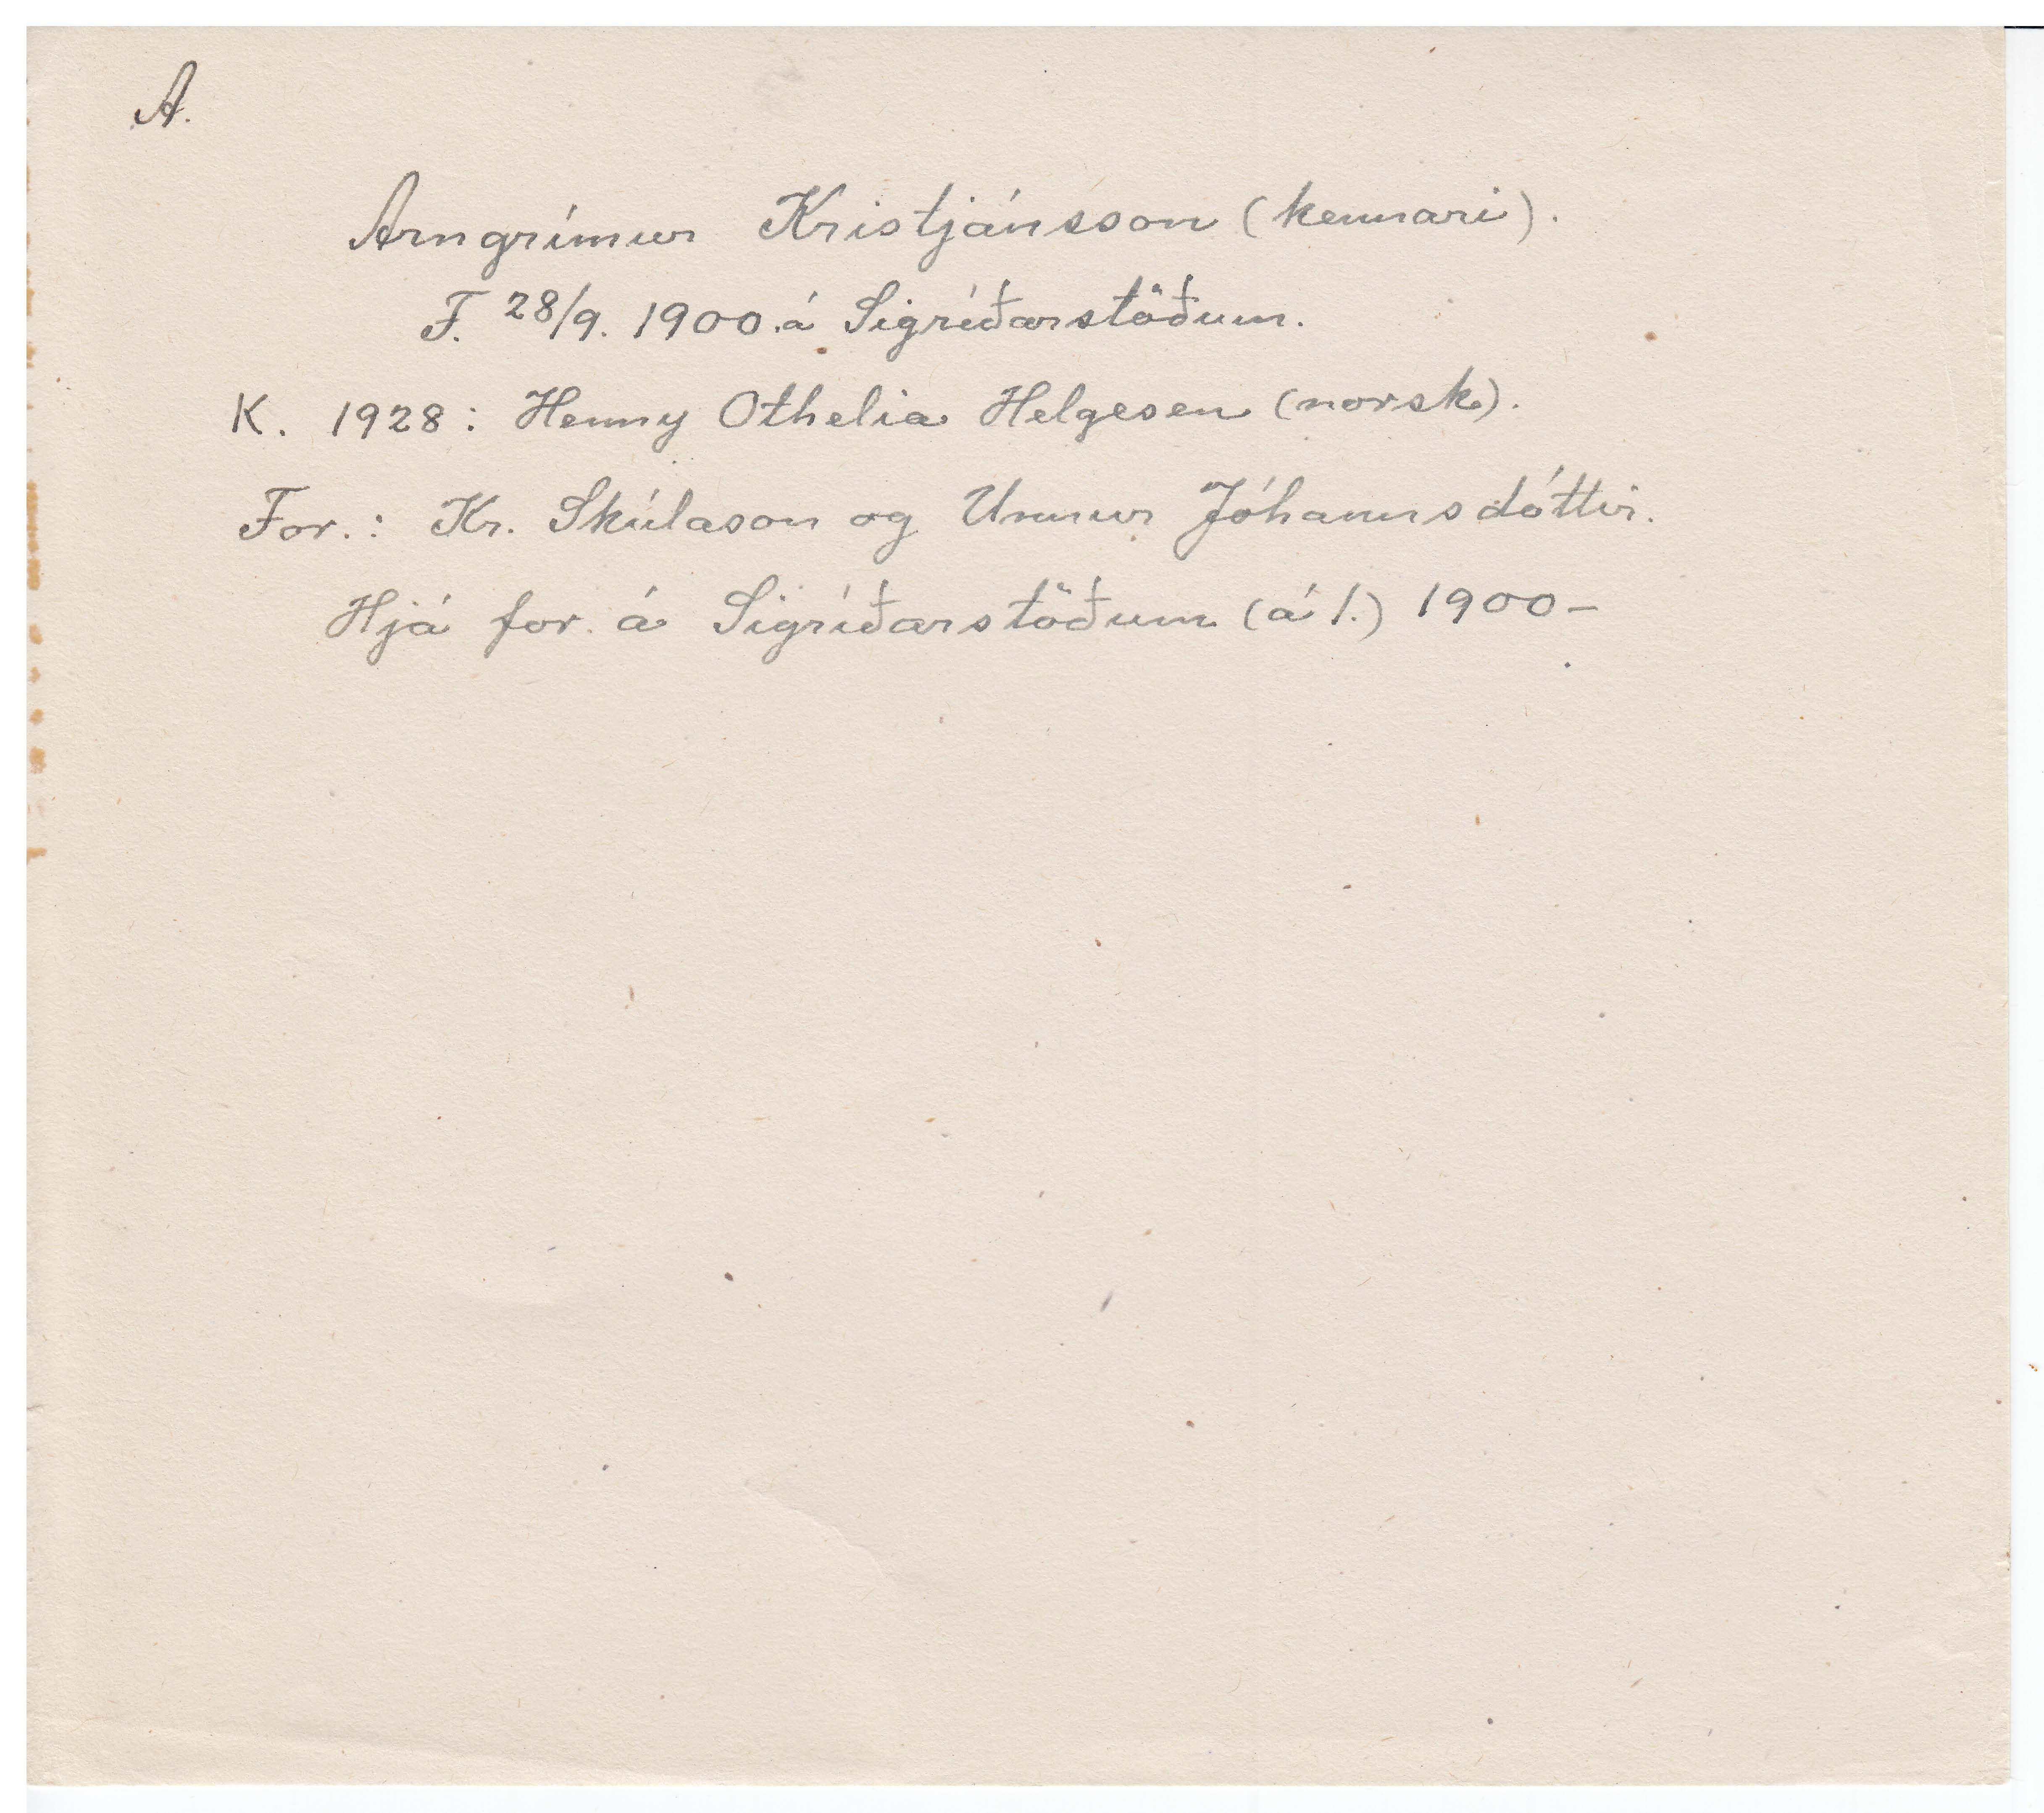 A.
Arngrímur Kristjánsson (kennari).
F. 28/9. 1900 á Sigríðarstöðum.
K. 1928: Henny Othelia Helgesen (norsk).
For.: Kr. Skúlason og Unnur Jóhannsdóttir.
Hjá for. á Sigríðarstöðum (á 1.) 1900–